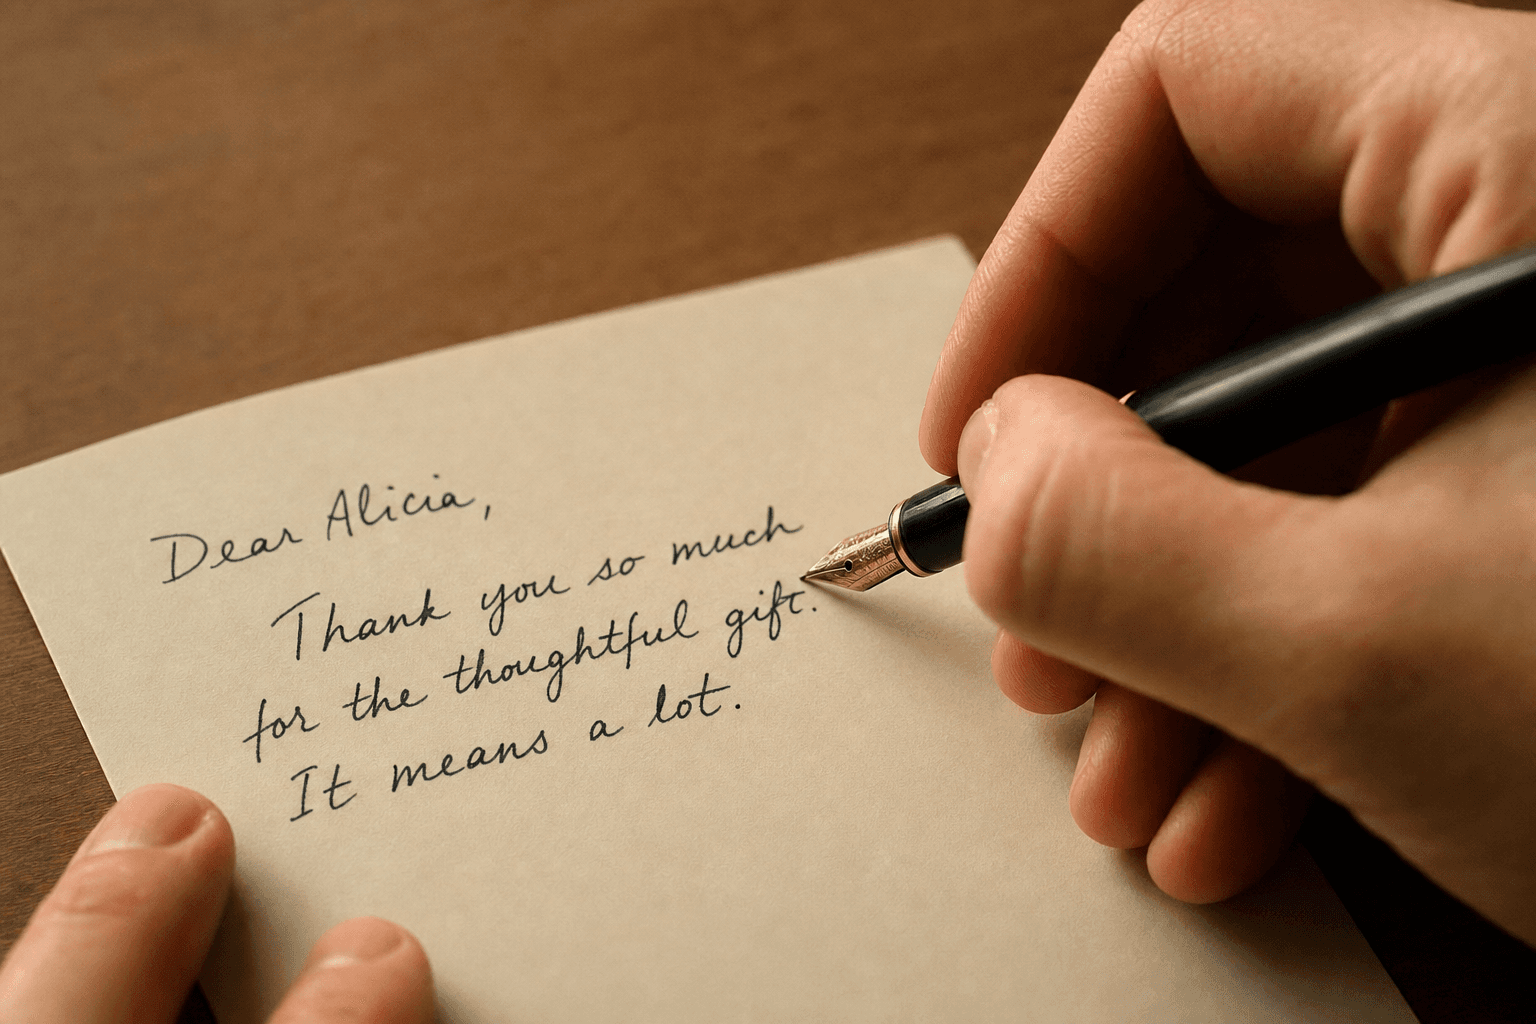 Dear Alicia,
Thank you so much
for the thoughtful gift.
It means a lot.